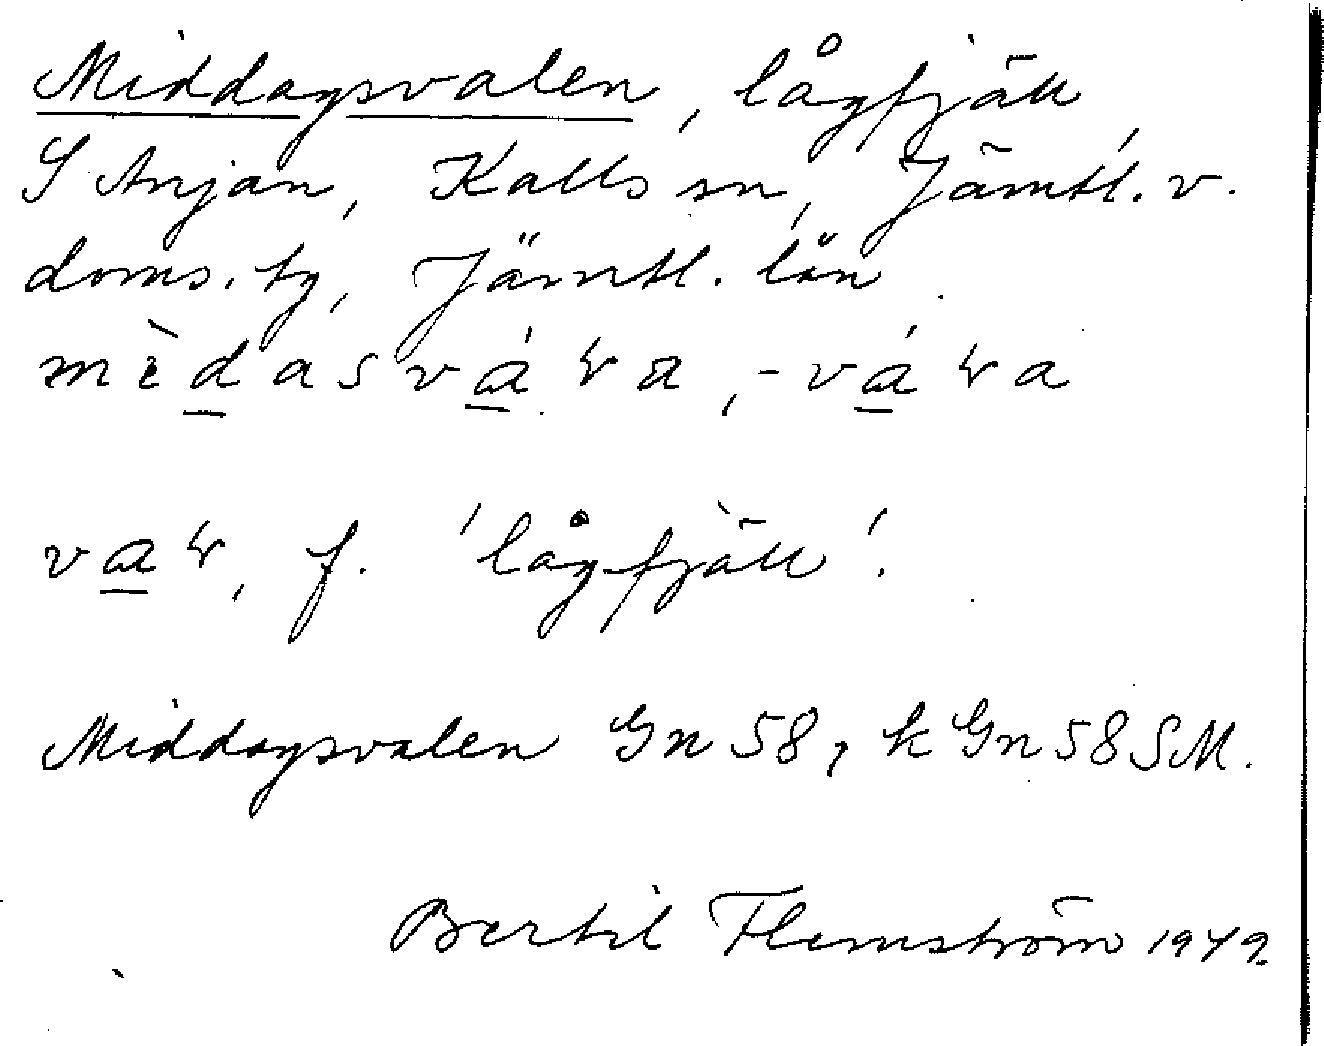 Middagsvalen, lågfjäll
S Anjan, Kalls sn, Jämtl. v.
doms. tg, Jämtl. län
vaɽ, f. 'lågfjäll'.
Middagsvalen Gn 58, k Gn 58 SM.
Bertil Flemström 1972